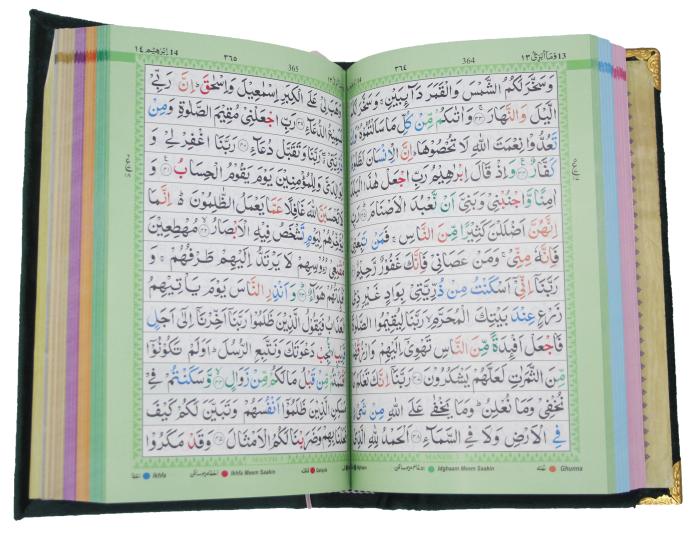 13 وَمَآ اُبَرِّئُ ١٣
364
٣٦٤
وَسَخَّرَ لَكُمُ الشَّمْسَ وَالْقَمَرَ دَآئِبَيْنِ ۚ وَسَخَّرَ
الَّيْلَ وَالنَّهَارَ ۚ﴿٣٣﴾ وَاٰتٰىكُمْ مِّنْ كُلِّ مَا سَاَلْتُمُوْهُ
تَعُدُّوْا نِعْمَتَ اللّٰهِ لَا تُحْصُوْهَا ؕ اِنَّ الْاِنْسَانَ
كَفَّارٌ ﴿٣٤﴾ وَاِذْ قَالَ اِبْرٰهِيْمُ رَبِّ اجْعَلْ هٰذَا
اٰمِنًا وَّاجْنُبْنِيْ وَبَنِيَّ اَنْ نَّعْبُدَ الْاَصْنَامَ ﴿٣٥﴾
اِنَّهُنَّ اَضْلَلْنَ كَثِيْرًا مِّنَ النَّاسِ ۚ فَمَنْ تَبِعَنِيْ
فَاِنَّهٗ مِنِّيْ ۚ وَمَنْ عَصَانِيْ فَاِنَّكَ غَفُوْرٌ رَّحِيْمٌ
رَبَّنَاۤ اِنِّيْۤ اَسْكَنْتُ مِنْ ذُرِّيَّتِيْ بِوَادٍ غَيْرِ ذِيْ
زَرْعٍ عِنْدَ بَيْتِكَ الْمُحَرَّمِ ۙ رَبَّنَا لِيُقِيْمُوا الصَّلٰوةَ
فَاجْعَلْ اَفْئِدَةً مِّنَ النَّاسِ تَهْوِيْۤ اِلَيْهِمْ
مِّنَ الثَّمَرٰتِ لَعَلَّهُمْ يَشْكُرُوْنَ ﴿٣٧﴾ رَبَّنَاۤ اِنَّكَ تَعْلَمُ
نُخْفِيْ وَمَا نُعْلِنُ ؕ وَمَا يَخْفٰى عَلَى اللّٰهِ مِنْ شَيْءٍ
فِي الْاَرْضِ وَلَا فِي السَّمَآءِ ﴿٣٨﴾ اَلْحَمْدُ لِلّٰهِ الَّذِيْ
Idghaam Meem Saakin
Ghunna
14 اِبْرٰهِيْمَ ١٤
365
٣٦٥
عَلَى الْكِبَرِ اِسْمٰعِيْلَ وَاِسْحٰقَ ؕ اِنَّ رَبِّيْ
الدُّعَآءِ ﴿٣٩﴾ رَبِّ اجْعَلْنِيْ مُقِيْمَ الصَّلٰوةِ وَمِنْ
رَبَّنَا وَتَقَبَّلْ دُعَآءِ ﴿٤٠﴾ رَبَّنَا اغْفِرْ لِيْ وَ
وَلِلْمُؤْمِنِيْنَ يَوْمَ يَقُوْمُ الْحِسَابُ ﴿٤١﴾ وَ
اللّٰهَ غَافِلًا عَمَّا يَعْمَلُ الظّٰلِمُوْنَ ؕ اِنَّمَا
لِيَوْمٍ تَشْخَصُ فِيْهِ الْاَبْصَارُ ﴿٤٢﴾ مُهْطِعِيْنَ
رُءُوْسِهِمْ لَا يَرْتَدُّ اِلَيْهِمْ طَرْفُهُمْ ۚ وَ
هَوَآءٌ ﴿٤٣﴾ وَاَنْذِرِ النَّاسَ يَوْمَ يَاْتِيْهِمُ
الْعَذَابُ فَيَقُوْلُ الَّذِيْنَ ظَلَمُوْا رَبَّنَاۤ اَخِّرْنَاۤ اِلٰۤى اَجَلٍ
نُّجِبْ دَعْوَتَكَ وَنَتَّبِعِ الرُّسُلَ ؕ اَوَلَمْ تَكُوْنُوْۤا
مِّنْ قَبْلُ مَا لَكُمْ مِّنْ زَوَالٍ ﴿٤٤﴾ وَّسَكَنْتُمْ فِيْ
مَسٰكِنِ الَّذِيْنَ ظَلَمُوْۤا اَنْفُسَهُمْ وَتَبَيَّنَ لَكُمْ كَيْفَ
فَعَلْنَا بِهِمْ وَضَرَبْنَا لَكُمُ الْاَمْثَالَ ﴿٤٥﴾ وَقَدْ مَكَرُوْا
Ikhfa
Ikhfa Meem Saakin
Qalqala